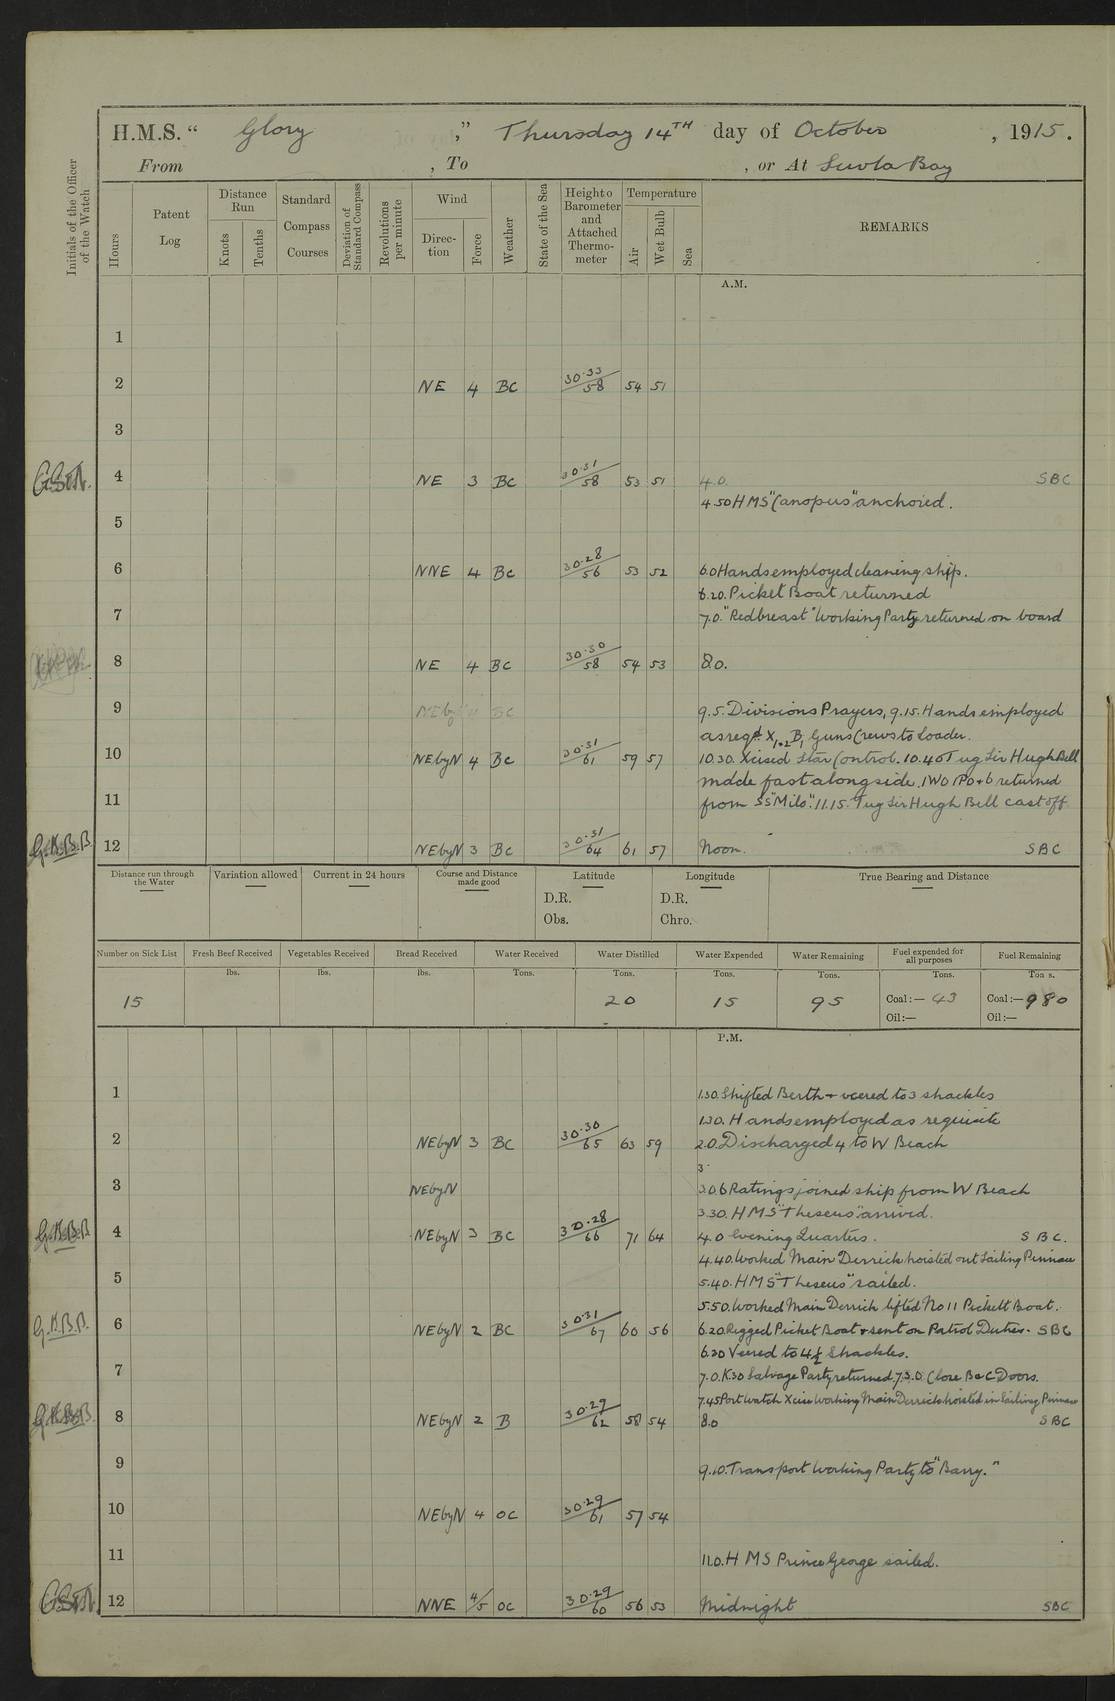 H.M.S. "Glory," Thursday 14TH day of October, 1915.
From , To , or At Suvla Bay
Initials of the Officer of the Watch
Hours
Patent Log
Distance Run
Knots
Tenths
Standard Compass Courses
Deviation of Standard Compass
Revolutions per minute
Wind
Direction
Force
Weather
State of the Sea
Height o Barometer and Attached Thermometer
Temperature
Air
Wet Bulb
Sea
REMARKS
A.M.
1
2 NE 4 BC 30.33/58 54 51
3
4 NE 3 BC 30.31/58 53 51 4.0. SBC
4.50 HMS "Canopus" anchored.
5
6 NNE 4 BC 30.28/56 53 52 6.0 Hands employed cleaning ship.
6.20. Picket Boat returned
7 7.0. "Redbreast" Working Party returned on board
8 NE 4 BC 30.30/58 54 53 8.0.
9 BC 9.5. Divisions Prayers, 9.15. Hands employed
as reqd. X1+2 B1 Guns Crews to Loader.
10 NEbyN 4 BC 30.31/61 59 57 10.30. Xcised Star Control. 10.40 Tug Sir Hugh Bell
made fast alongside. 1WO 1PO + 6 returned
11 from SS "Milo". 11.15. Tug Sir Hugh Bell cast off
G.K.B.B. 12 NEbyN 3 BC 30.31/64 61 57 Noon. SBC
Distance run through the Water
Variation allowed
Current in 24 hours
Course and Distance made good
Latitude
D.R.
Obs.
Longitude
D.R.
Chro.
True Bearing and Distance
Number on Sick List
Fresh Beef Received
Vegetables Received
Bread Received
Water Received
Water Distilled
Water Expended
Water Remaining
Fuel expended for all purposes
Fuel Remaining
lbs. lbs. lbs. Tons. Tons. Tons. Tons. Tons. Tons.
15 20 15 95 Coal:— 43 Coal:— 980
Oil:— Oil:—
P.M.
1 1.30. Shifted Berth + veered to 3 shackles
1.30. Hands employed as requisite
2 NEbyN 3 BC 30.30/65 63 59 2.0. Discharged 4 to W Beach
3
3 NEbyN 3.0. 6 Ratings joined ship from W Beach
3.30. HMS "Theseus" arrived.
G.K.B.B 4 NEbyN 3 BC 30.28/66 71 64 4.0 Evening Quarters. SBC.
4.40. Worked Main Derrick hoisted out Sailing Pinnace
5 5.40. HMS "Theseus" sailed.
5.50. Worked Main Derrick lifted No 11 Pickett Boat.
G.K.B.B. 6 NEbyN 2 BC 30.31/67 60 56 6.20. Rigged Picket Boat + sent on Patrol Duties. SBC
6.30 Veered to 4½ Shackles.
7 7.0. K30 Salvage Party returned. 7.30. Close B & C Doors.
7.45 Port Watch Xcise Working Main Derrick hoisted in Sailing Pinnace
G.K.B.B. 8 NEbyN 2 B 30.29/62 58 54 8.0 SBC
9 9.10. Transport Working Party to "Barry."
10 NEbyN 4 OC 30.29/61 57 54
11 11.0. HMS Prince George sailed.
12 NNE 4/5 OC 30.29/60 56 53 Midnight SBC